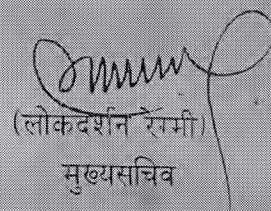 (लोकदर्शन रेग्मी)
मुख्यसचिव